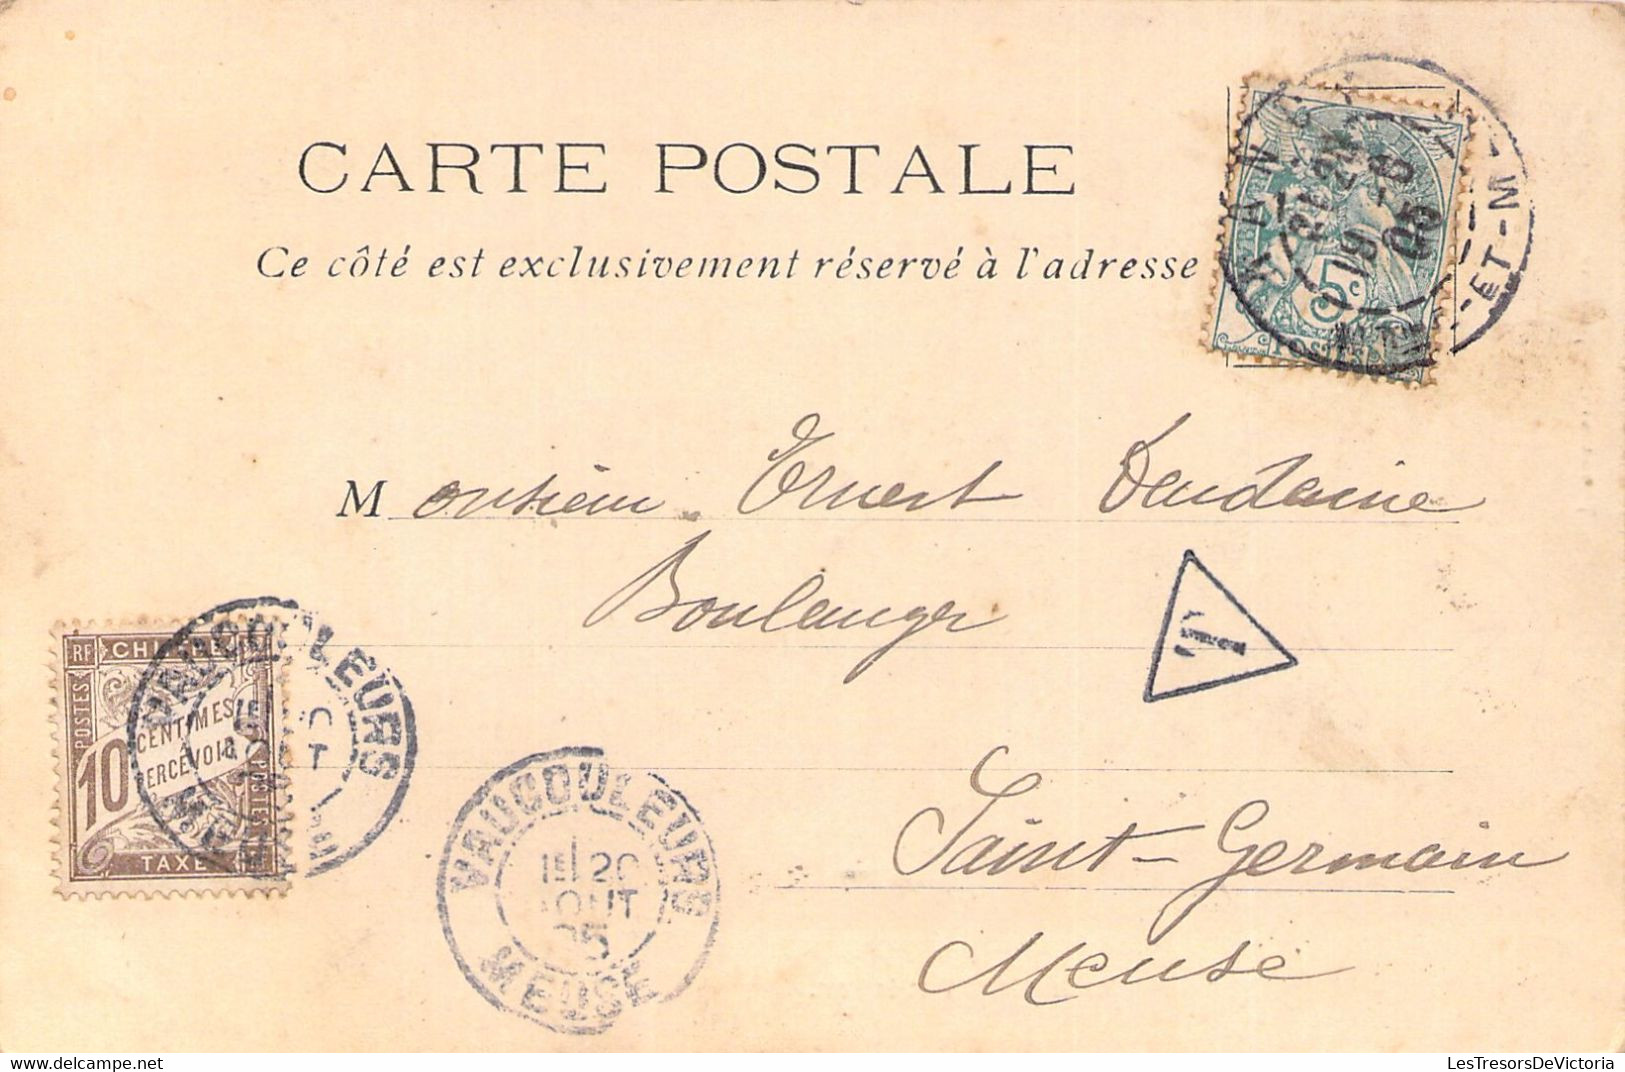 CARTE POSTALE
Ce côté est exclusivement réservé à l'adresse
NANCY
19 - 8
05
-ET-M-
5c
POSTES
Monsieur Ernest Daudaine
Boulanger
T
Saint-Germain
Meuse
RF CHIFFRE
POSTES
10 CENTIMES
À
PERCEVOIR
POSTES
TAXE
VAUCOULEURS
VAUCOULEURS
1E 20
AOUT
05
MEUSE
LesTresorsDeVictoria